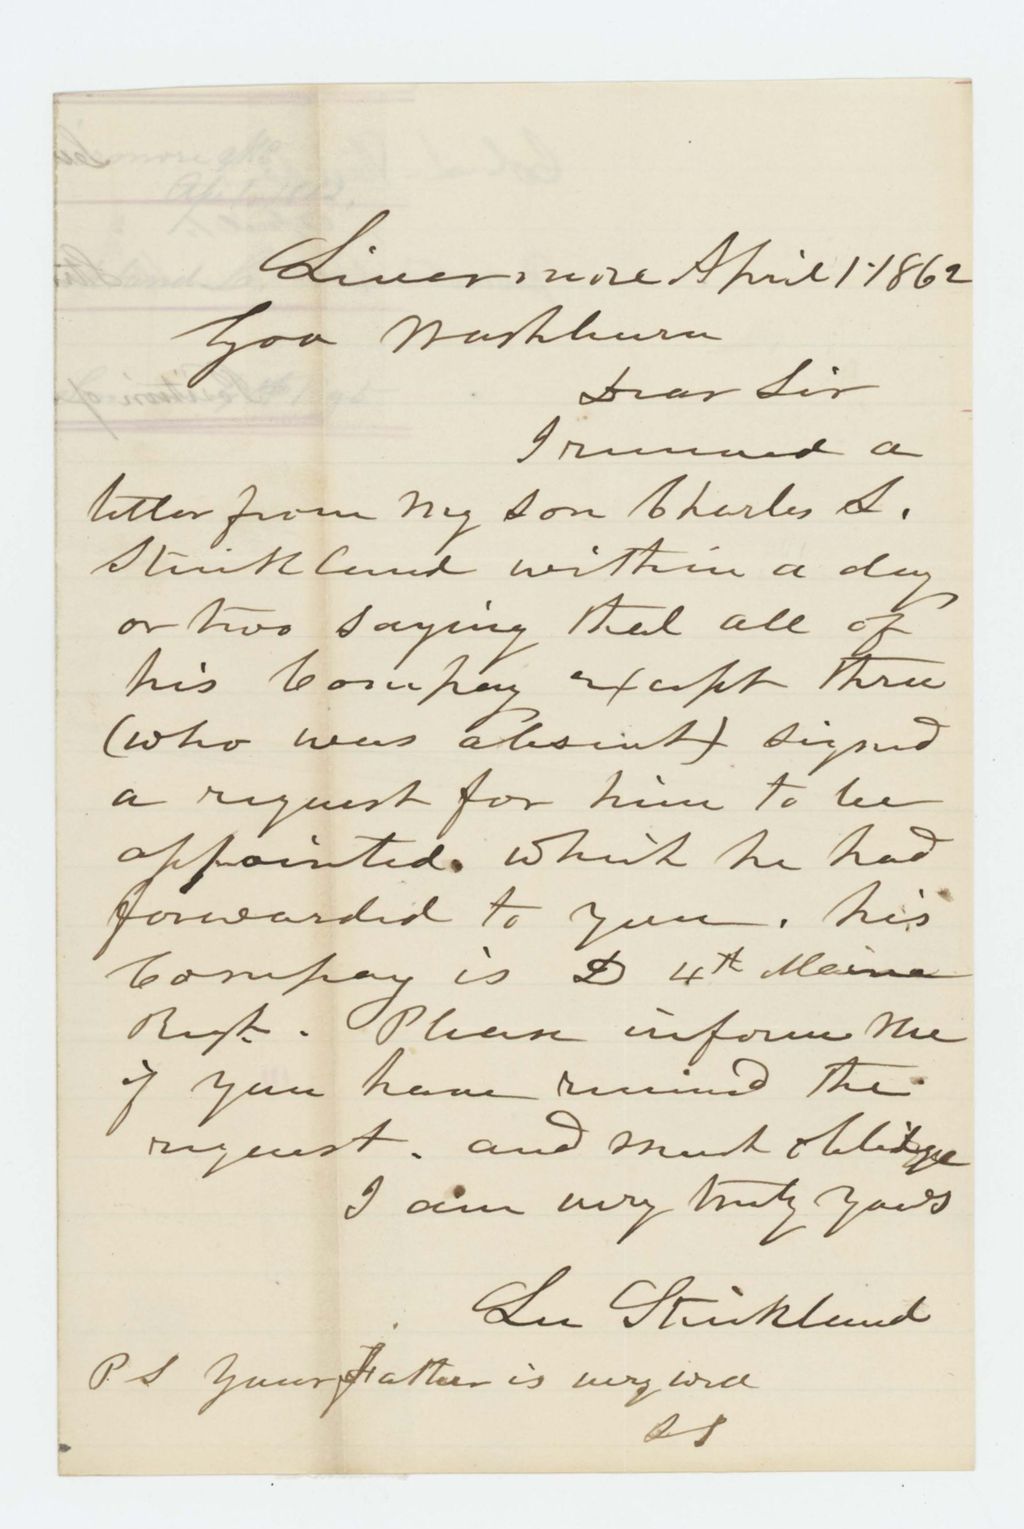 Livermore April 1. 1862
Gov Washburn
Dear Sir
I received a
letter from My son Charles S.
Strickland within a day
or two saying that all of
his Compay except three
(who was absent) signed
a request for him to be
appointed. which he had
forwarded to you. his
Compay is D 4th Maine
Regt. Please inform Me
if you have received the
request. and much oblidge
I am very truly yours
Lee Strickland
P S Your Father is very well
L S